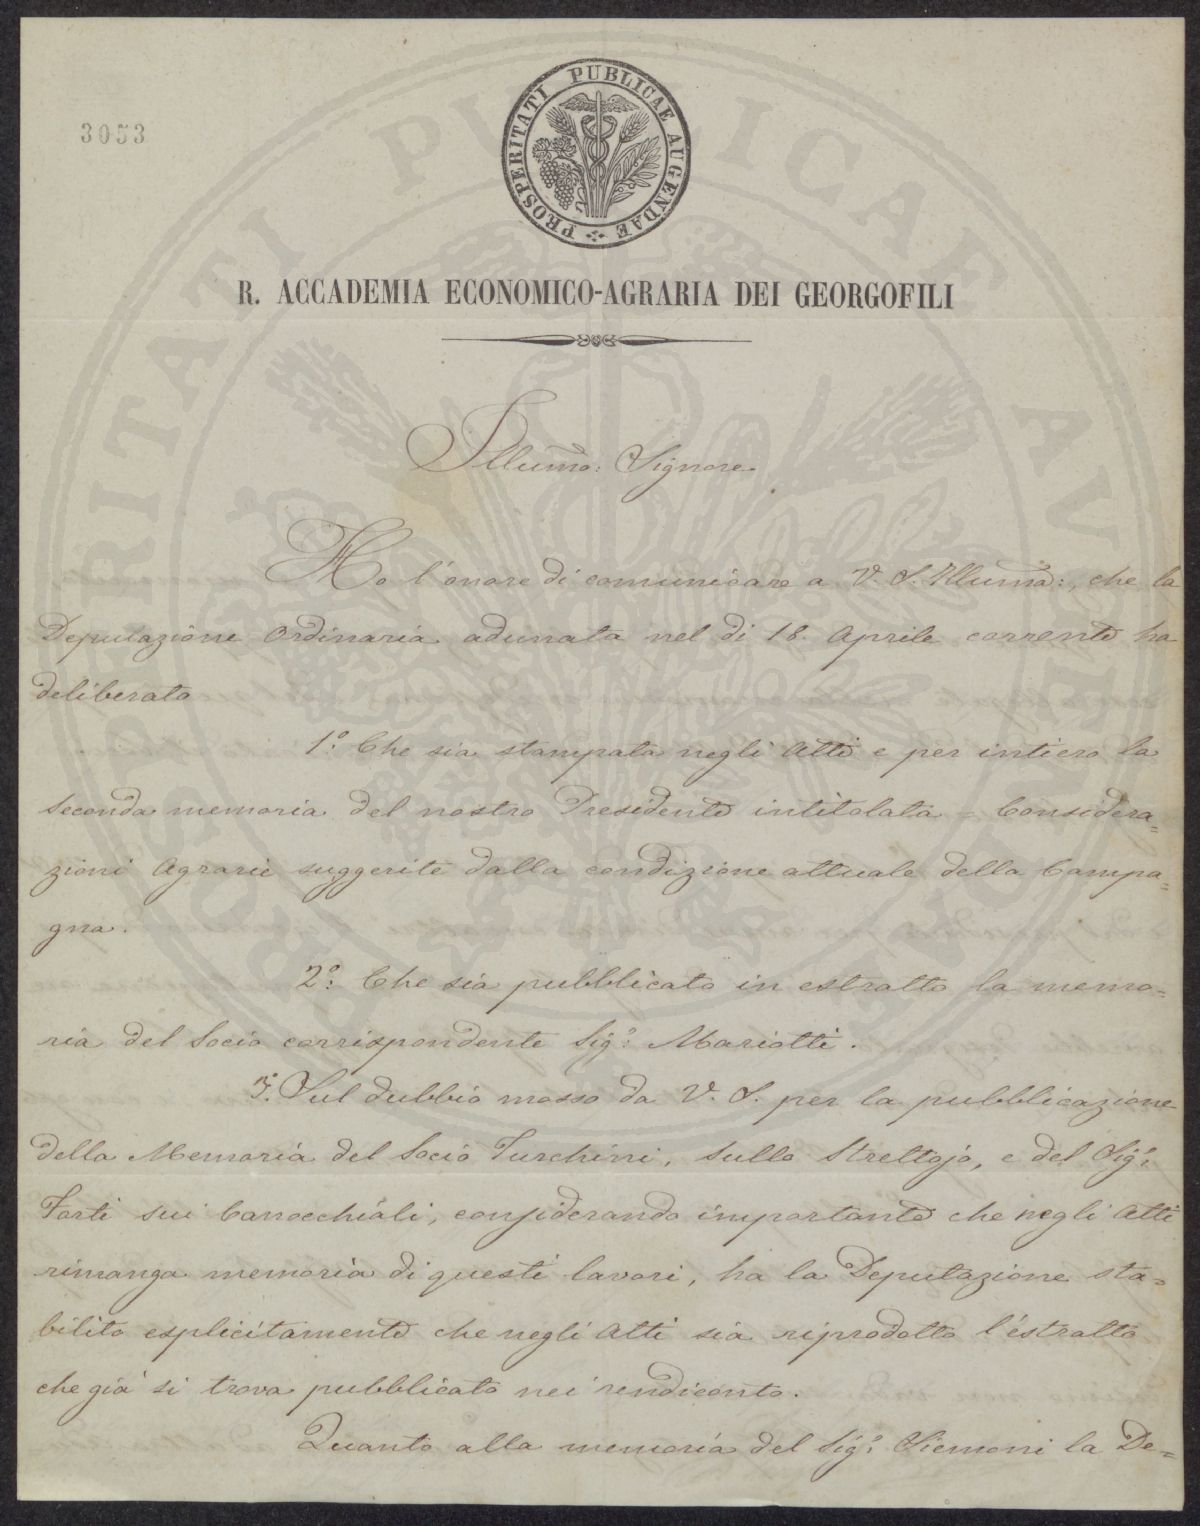 3053
PROSPERITATI PUBLICAE AUGENDAE
R. ACCADEMIA ECONOMICO-AGRARIA DEI GEORGOFILI
Illumo: Signore
Ho l'onore di comunicare a V. S. Illuma:, che la
Deputazione Ordinaria adunata nel dì 18. Aprile corrente ha
deliberato
1º. Che sia stampata negli Atti e per intiero la
seconda memoria del nostro Presidente intitolata = Considera=
zioni Agrarie suggerite dalla condizione attuale della Campa=
gna.
2º. Che sia pubblicato in estratto la memo=
ria del Socio corrispondente Sigr: Mariotti.
3º. Sul dubbio mosso da V. S. per la pubblicazione
della Memoria del Socio Turchini, sullo Strettojo, e del Sigr:
Forti sui Canocchiali, considerando importante che negli Atti
rimanga memoria di questi lavori, ha la Deputazione sta=
bilito esplicitamente che negli Atti sia riprodotto l'estratto
che già si trova pubblicato nei rendiconto.
Quanto alla memoria del Sigr: Siemoni la De=